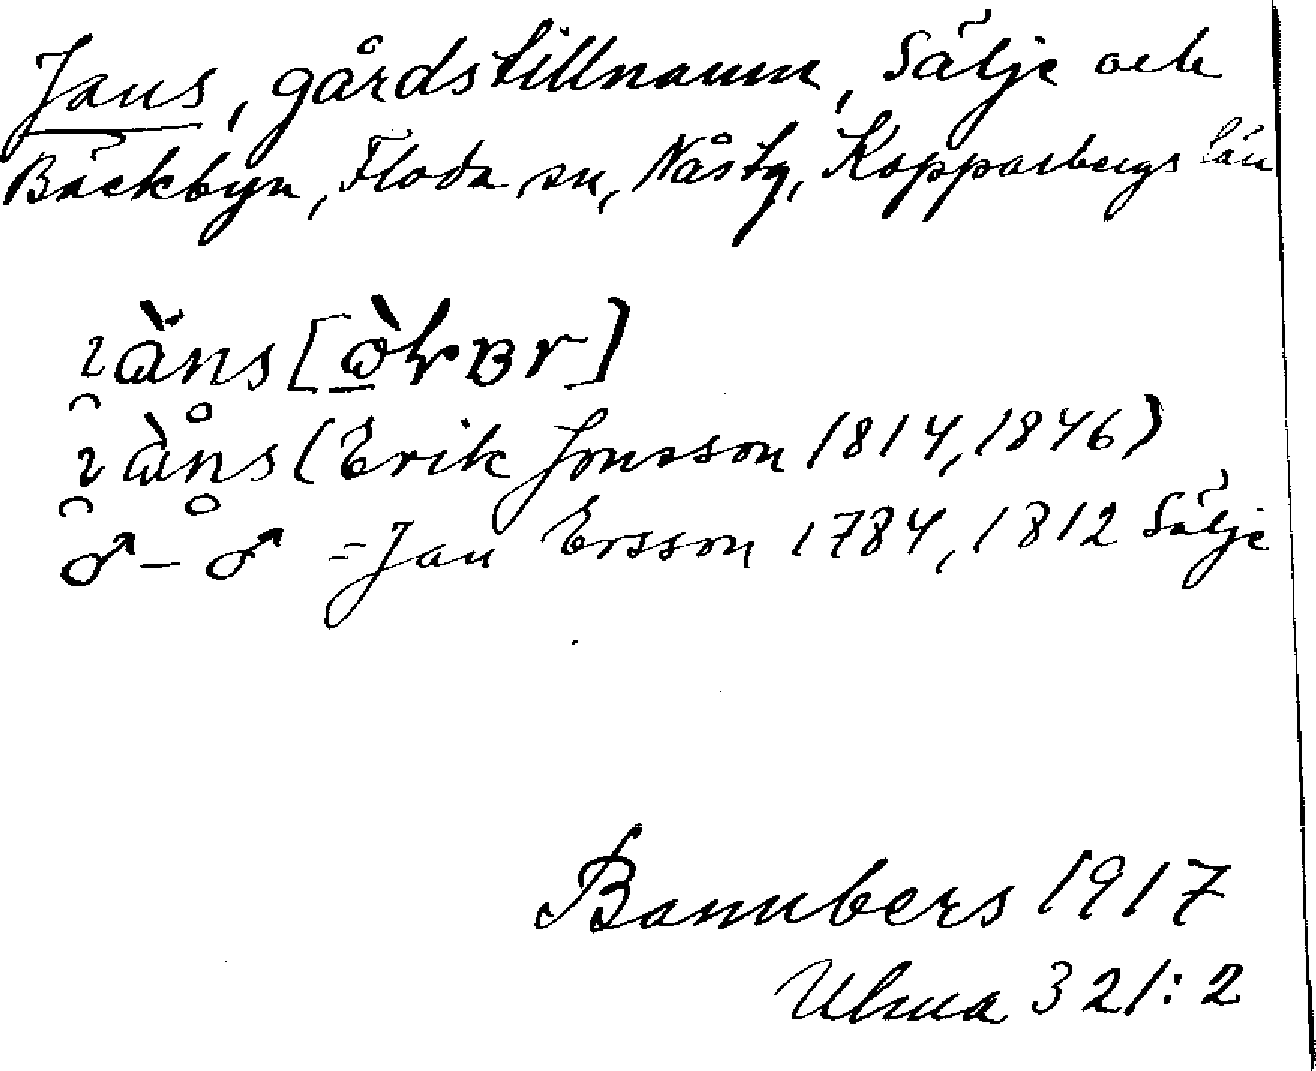 Jans, gårdstillnamn, Sälje och
Bäckbyn, Floda sn, Nås tg, Kopparbergs län
Erik Jonsson 1814, 1846)
♂ – ♂ = Jan Ersson 1784, 1812 Sälje
Bannbers 1917
Ulma 321:2